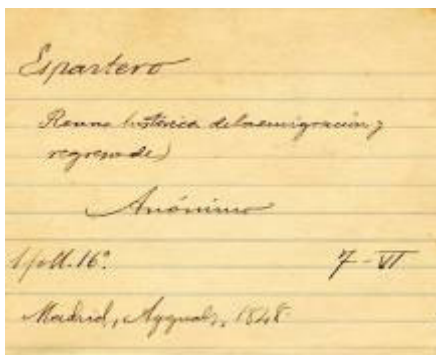 Espartero
Resena histórica de la emigración y
regreso de)
Anónimo
1 foll. 16º.
7-VI
Madrid, Ayguals, 1848.